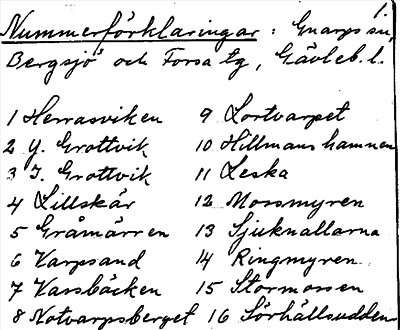 1.
Nummerförklaringar: Gnarps sn,
Bergsjö och Forsa tg, Gävleb. l.
1 Herrasviken
2 Y. Grottvik
3 I. Grottvik
4 Lillskär
5 Gråmärren
6 Varpsand
7 Vassbäcken
8 Notvarpsberget
9 Lortvarpet
10 Hillmanshamnen
11 Leska
12 Morsmyren
13 Sjuknallarna
14 Ringmyren
15 Stormossen
16 Sörhällsudden